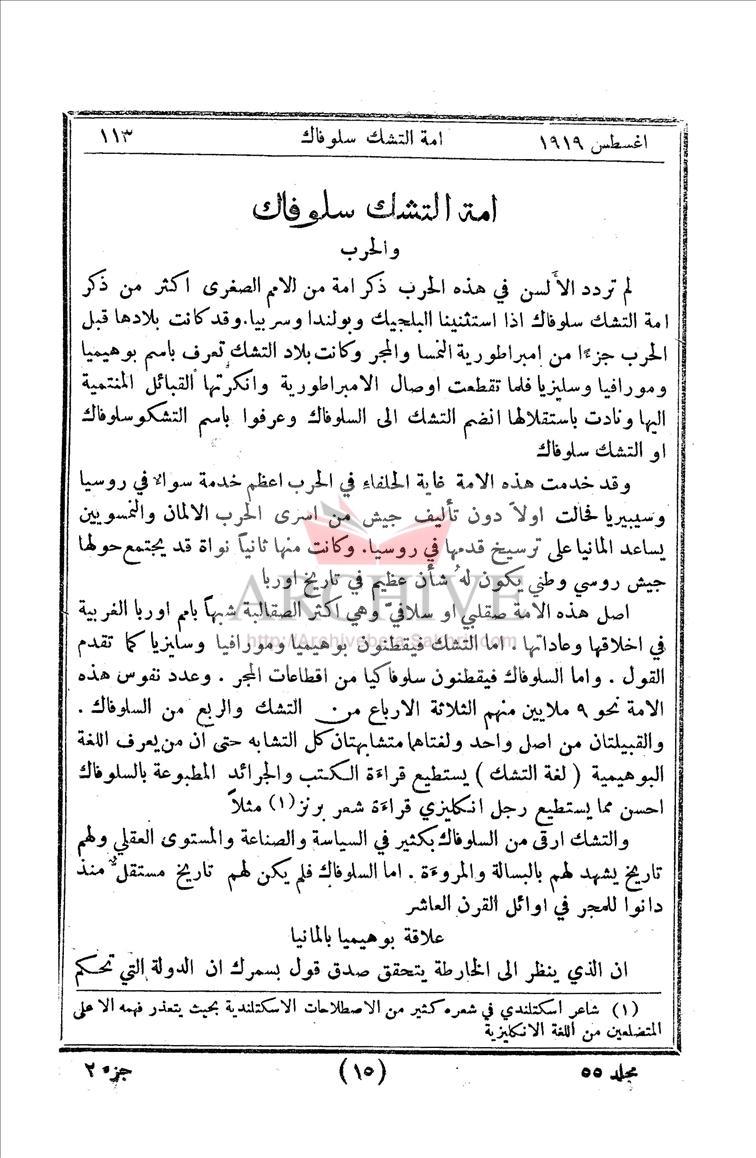 اغسطس ١٩١٩ امة التشك سلوفاك ١١٣
امة التشك سلوفاك
والحرب
لم تردد الألسن في هذه الحرب ذكر امة من للامم الصغرى اكثر من ذكر
امة التشك سلوفاك اذا استثنينا البلجيك وبولندا وسربيا. وقد كانت بلادها قبل
الحرب جزءًا من امبراطورية النمسا والمجر وكانت بلاد التشك تعرف باسم بوهيميا
ومورافيا وسليزيا فلما تقطعت اوصال الامبراطورية وانكرتها القبائل المنتمية
اليها ونادت باستقلالها انضم التشك الى السلوفاك وعرفوا باسم التشكوسلوفاك
او التشك سلوفاك
وقد خدمت هذه الامة غاية الحلفاء في الحرب اعظم خدمة سواء في روسيا
وسيبيريا فحالت اولاً دون تأليف جيش من اسرى الحرب الالمان والنمسويين
يساعد المانيا على ترسيخ قدمها في روسيا. وكانت منها ثانياً نواة قد يجتمع حولها
جيش روسي وطني يكون لهُ شأن عظيم في تاريخ اوربا
ARCHIVE
اصل هذه الامة صقلبي او سلافيّ وهي اكثر الصقالبة شبهاً بامم اوربا الغربية
http://Archivebeta.Sakhrit.com
في اخلاقها وعاداتها . اما التشك فيقطنون بوهيميا ومورافيا وسايزيا كما تقدم
القول . واما السلوفاك فيقطنون سلوفاكيا من اقطاعات المجر . وعدد نفوس هذه
الامة نحو ٩ ملايين منهم الثلاثة الارباع من التشك والربع من السلوفاك .
والقبيلتان من اصل واحد ولغتاهما متشابهتان كل التشابه حتى ان من يعرف اللغة
البوهيمية ( لغة التشك ) يستطيع قراءة الكتب والجرائد المطبوعة بالسلوفاك
احسن مما يستطيع رجل انكليزي قراءة شعر برنز (١) مثلاً
والتشك ارقى من السلوفاك بكثير في السياسة والصناعة والمستوى العقلي ولهم
تاريخ يشهد لهم بالبسالة والمروءة . اما السلوفاك فلم يكن لهم تاريخ مستقل منذ
دانوا للمجر في اوائل القرن العاشر
علاقة بوهيميا بالمانيا
ان الذي ينظر الى الخارطة يتحقق صدق قول بسمرك ان الدولة التي تحكم
(١) شاعر اسكتلندي في شعره كثير من الاصطلاحات الاسكتلندية بحيث يتعذر فهمه الا على
المتضلعين من اللغة الانكليزية
مجلد ٥٥ (١٥) جزء ٢